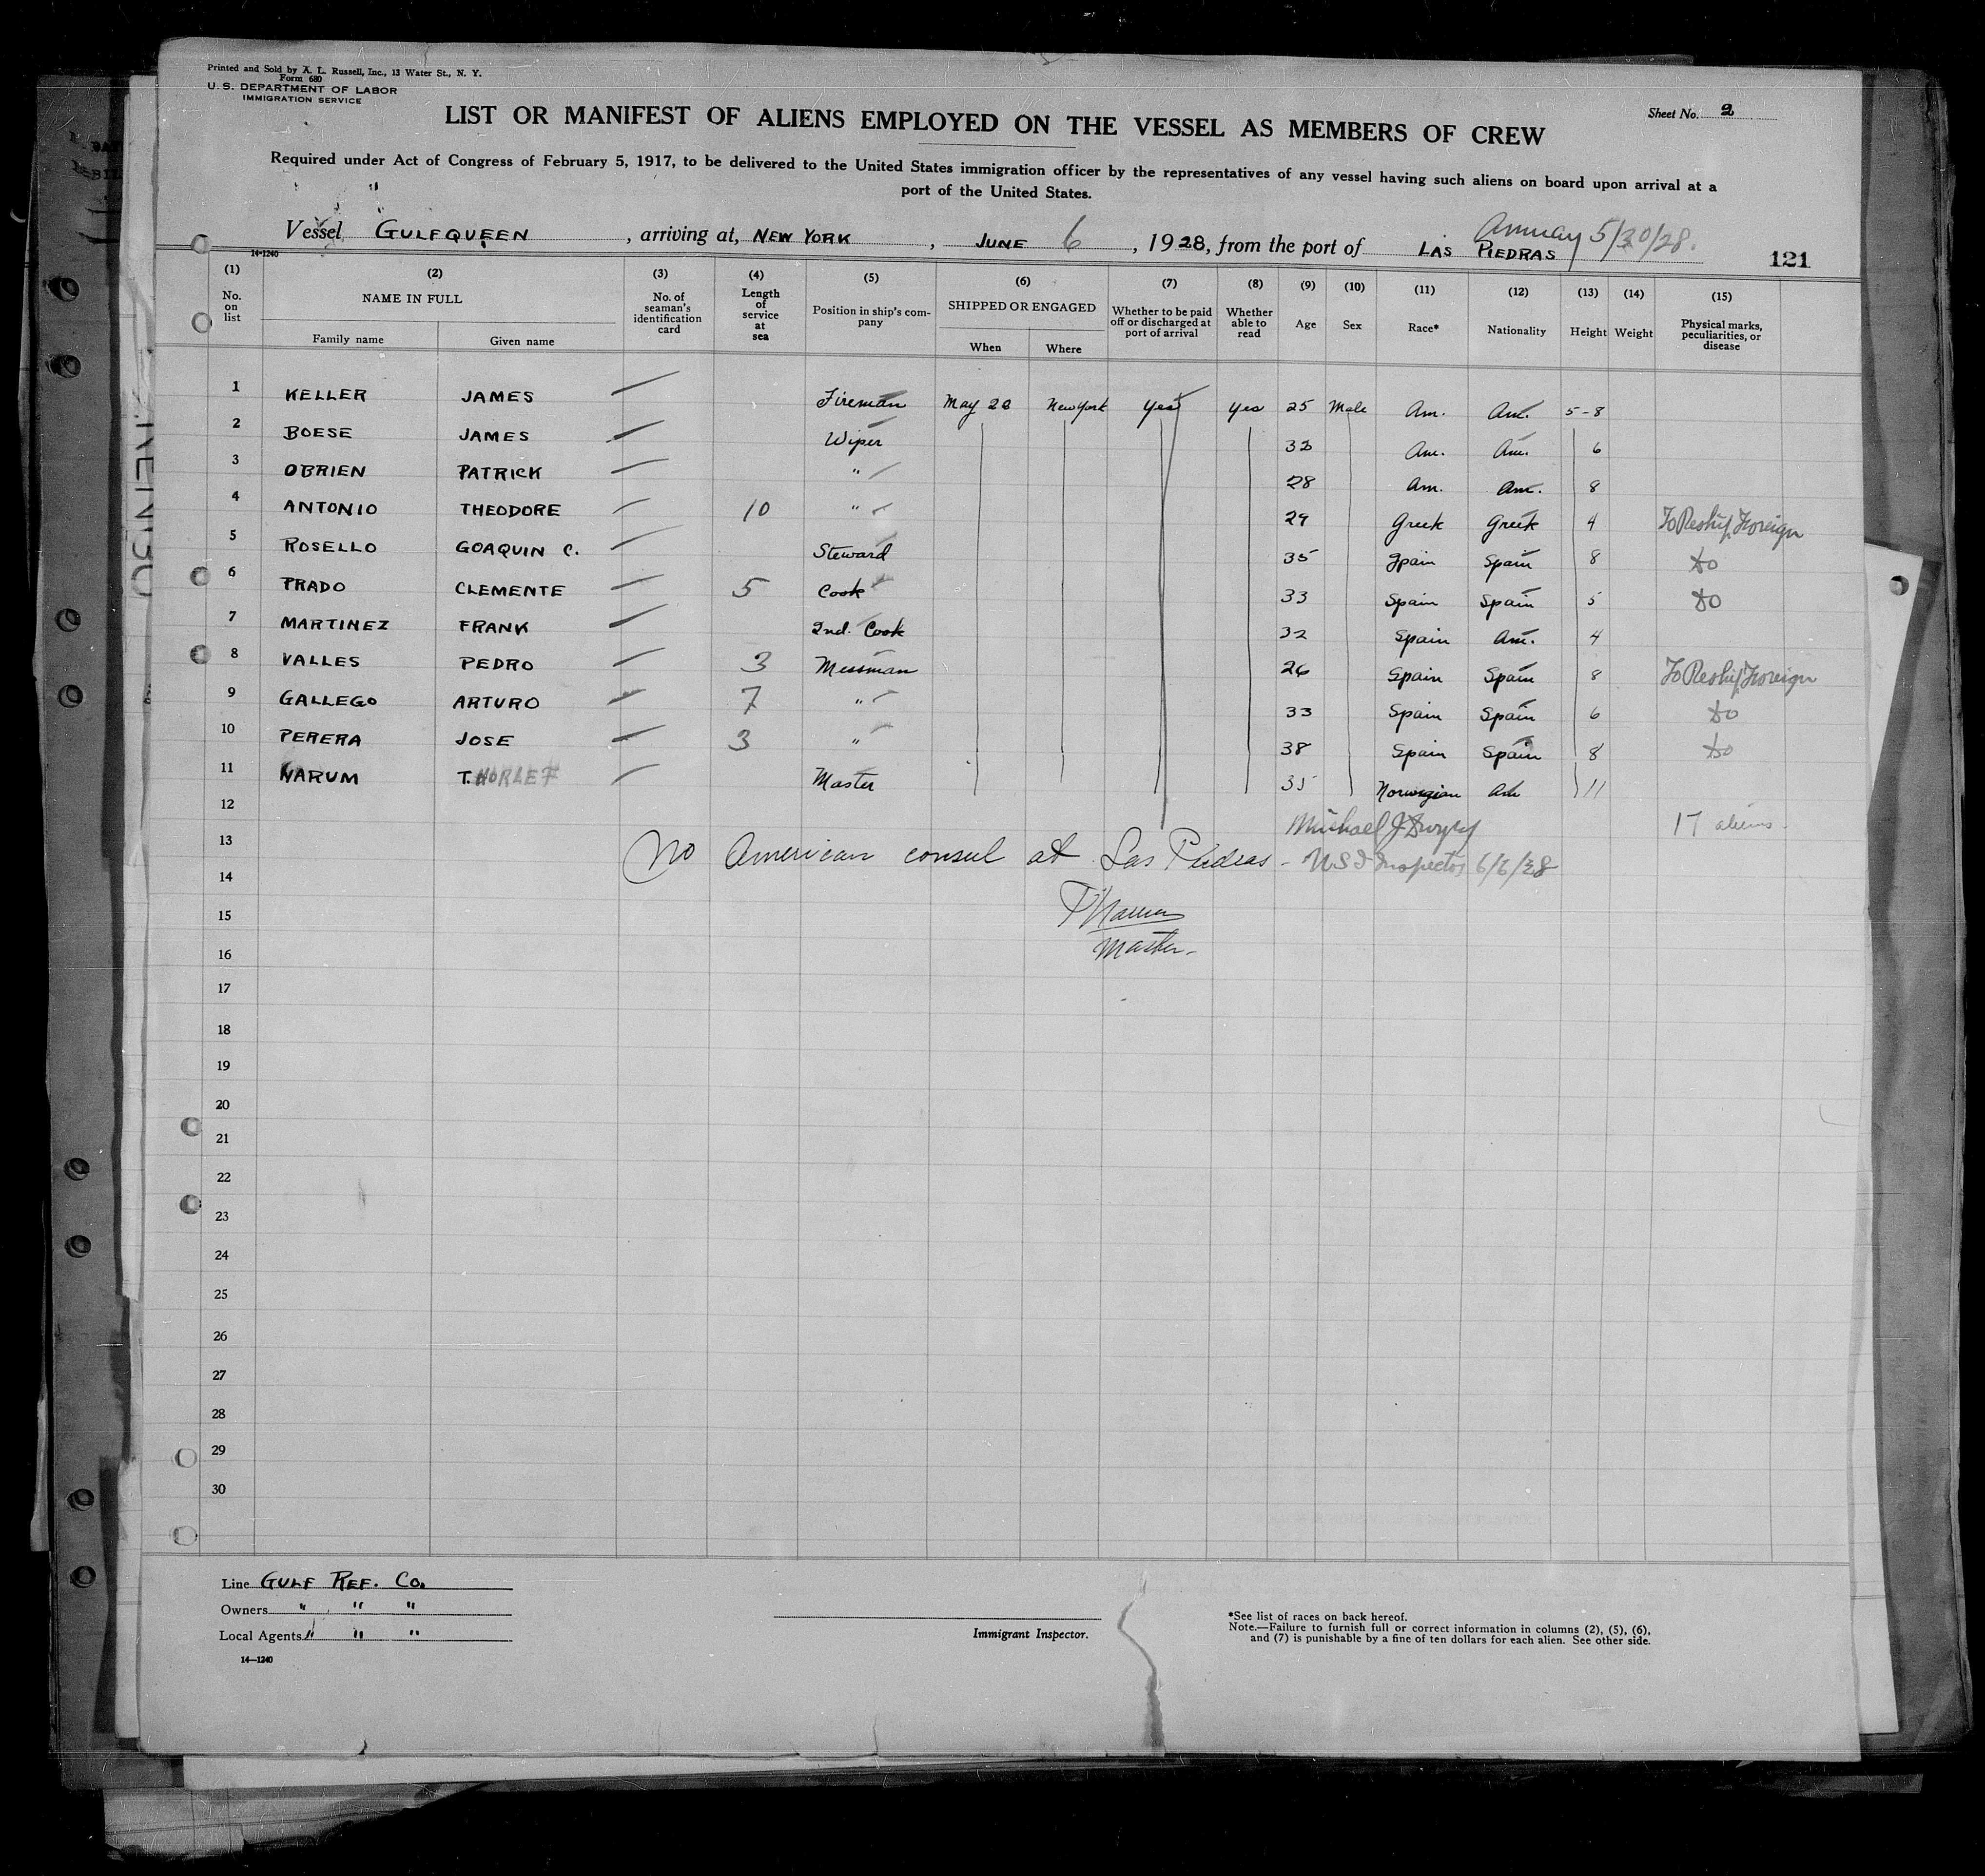 Printed and Sold by A. L. Russell, Inc., 13 Water St., N. Y.
Form 680
U. S. DEPARTMENT OF LABOR
IMMIGRATION SERVICE
Sheet No. 2
LIST OR MANIFEST OF ALIENS EMPLOYED ON THE VESSEL AS MEMBERS OF CREW
Required under Act of Congress of February 5, 1917, to be delivered to the United States immigration officer by the representatives of any vessel having such aliens on board upon arrival at a
port of the United States.
5/30/28.
Vessel GULFQUEEN, arriving at, NEW YORK, JUNE 6, 1928, from the port of LAS PIEDRAS
14-1240
121
(1) (2) (3) (4) (5) (6) (7) (8) (9) (10) (11) (12) (13) (14) (15)
No. on list NAME IN FULL Family name Given name No. of seaman's identification card Length of service at sea Position in ship's company SHIPPED OR ENGAGED When Where Whether to be paid off or discharged at port of arrival Whether able to read Age Sex Race* Nationality Height Weight Physical marks, peculiarities, or disease
1 KELLER JAMES Fireman May 28 New York Yes Yes 25 Male Am. Am. 5-8
2 BOESE JAMES Wiper 32 Am. Am. 6
3 OBRIEN PATRICK " 28 Am. Am. 8
4 ANTONIO THEODORE 10 " 29 Greek Greek 4 To Reship Foreign
5 ROSELLO GOAQUIN C. Steward 35 Spain Spain 8 do
6 PRADO CLEMENTE 5 Cook 33 Spain Spain 5 do
7 MARTINEZ FRANK 2nd. Cook 32 Spain Am. 4
8 VALLES PEDRO 3 Messman 26 Spain Spain 8 To Reship Foreign
9 GALLEGO ARTURO 7 " 33 Spain Spain 6 do
10 PERERA JOSE 3 " 38 Spain Spain 8 do
11 NARUM T.HORLEF Master 35 Norwegian Am 11
12 Michael J 17 aliens.
13 No American consul at Las Piedras - US I Inspector 6/6/28
14
15 T Narum
16 Master-
17
18
19
20
21
22
23
24
25
26
27
28
29
30
Line GULF REF. CO.
Owners " " "
Local Agents " " "
14-1240
Immigrant Inspector.
*See list of races on back hereof.
Note.—Failure to furnish full or correct information in columns (2), (5), (6),
and (7) is punishable by a fine of ten dollars for each alien. See other side.